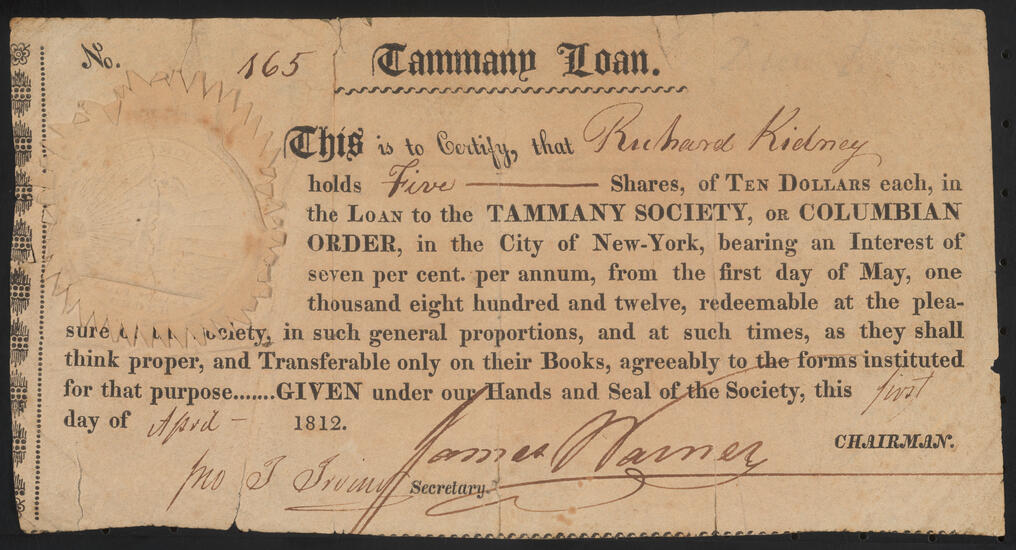 No. 165 Tammany Loan.
This is to Certify, that Richard Kidney
holds Five Shares, of TEN DOLLARS each, in
the LOAN to the TAMMANY SOCIETY, OR COLUMBIAN
ORDER, in the City of New-York, bearing an Interest of
seven per cent. per annum, from the first day of May, one
thousand eight hundred and twelve, redeemable at the plea-
sure Society, in such general proportions, and at such times, as they shall
think proper, and Transferable only on their Books, agreeably to the forms instituted
for that purpose.......GIVEN under our Hands and Seal of the Society, this first
day of April - 1812.
James Warner CHAIRMAN.
Jno T Irving Secretary.